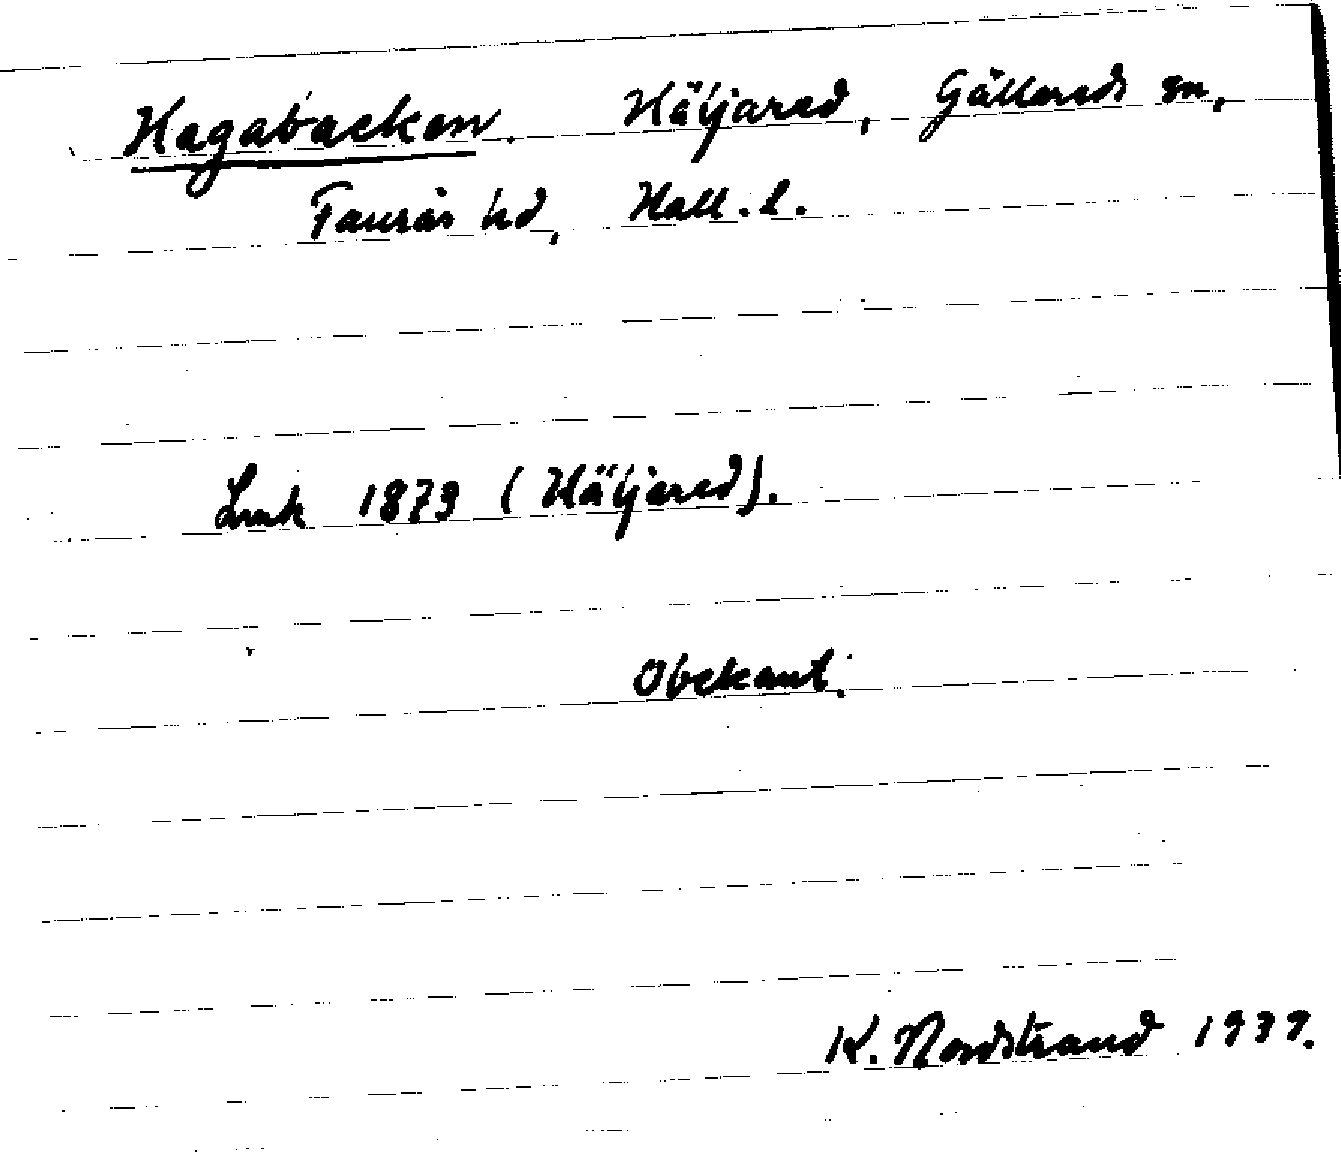 Hagabacken. Häljared, Gällareds sn,
Faurås hd, Hall. l.
Lmk 1879 (Häljared).
Obekant.
K. Nordstrand 1939.